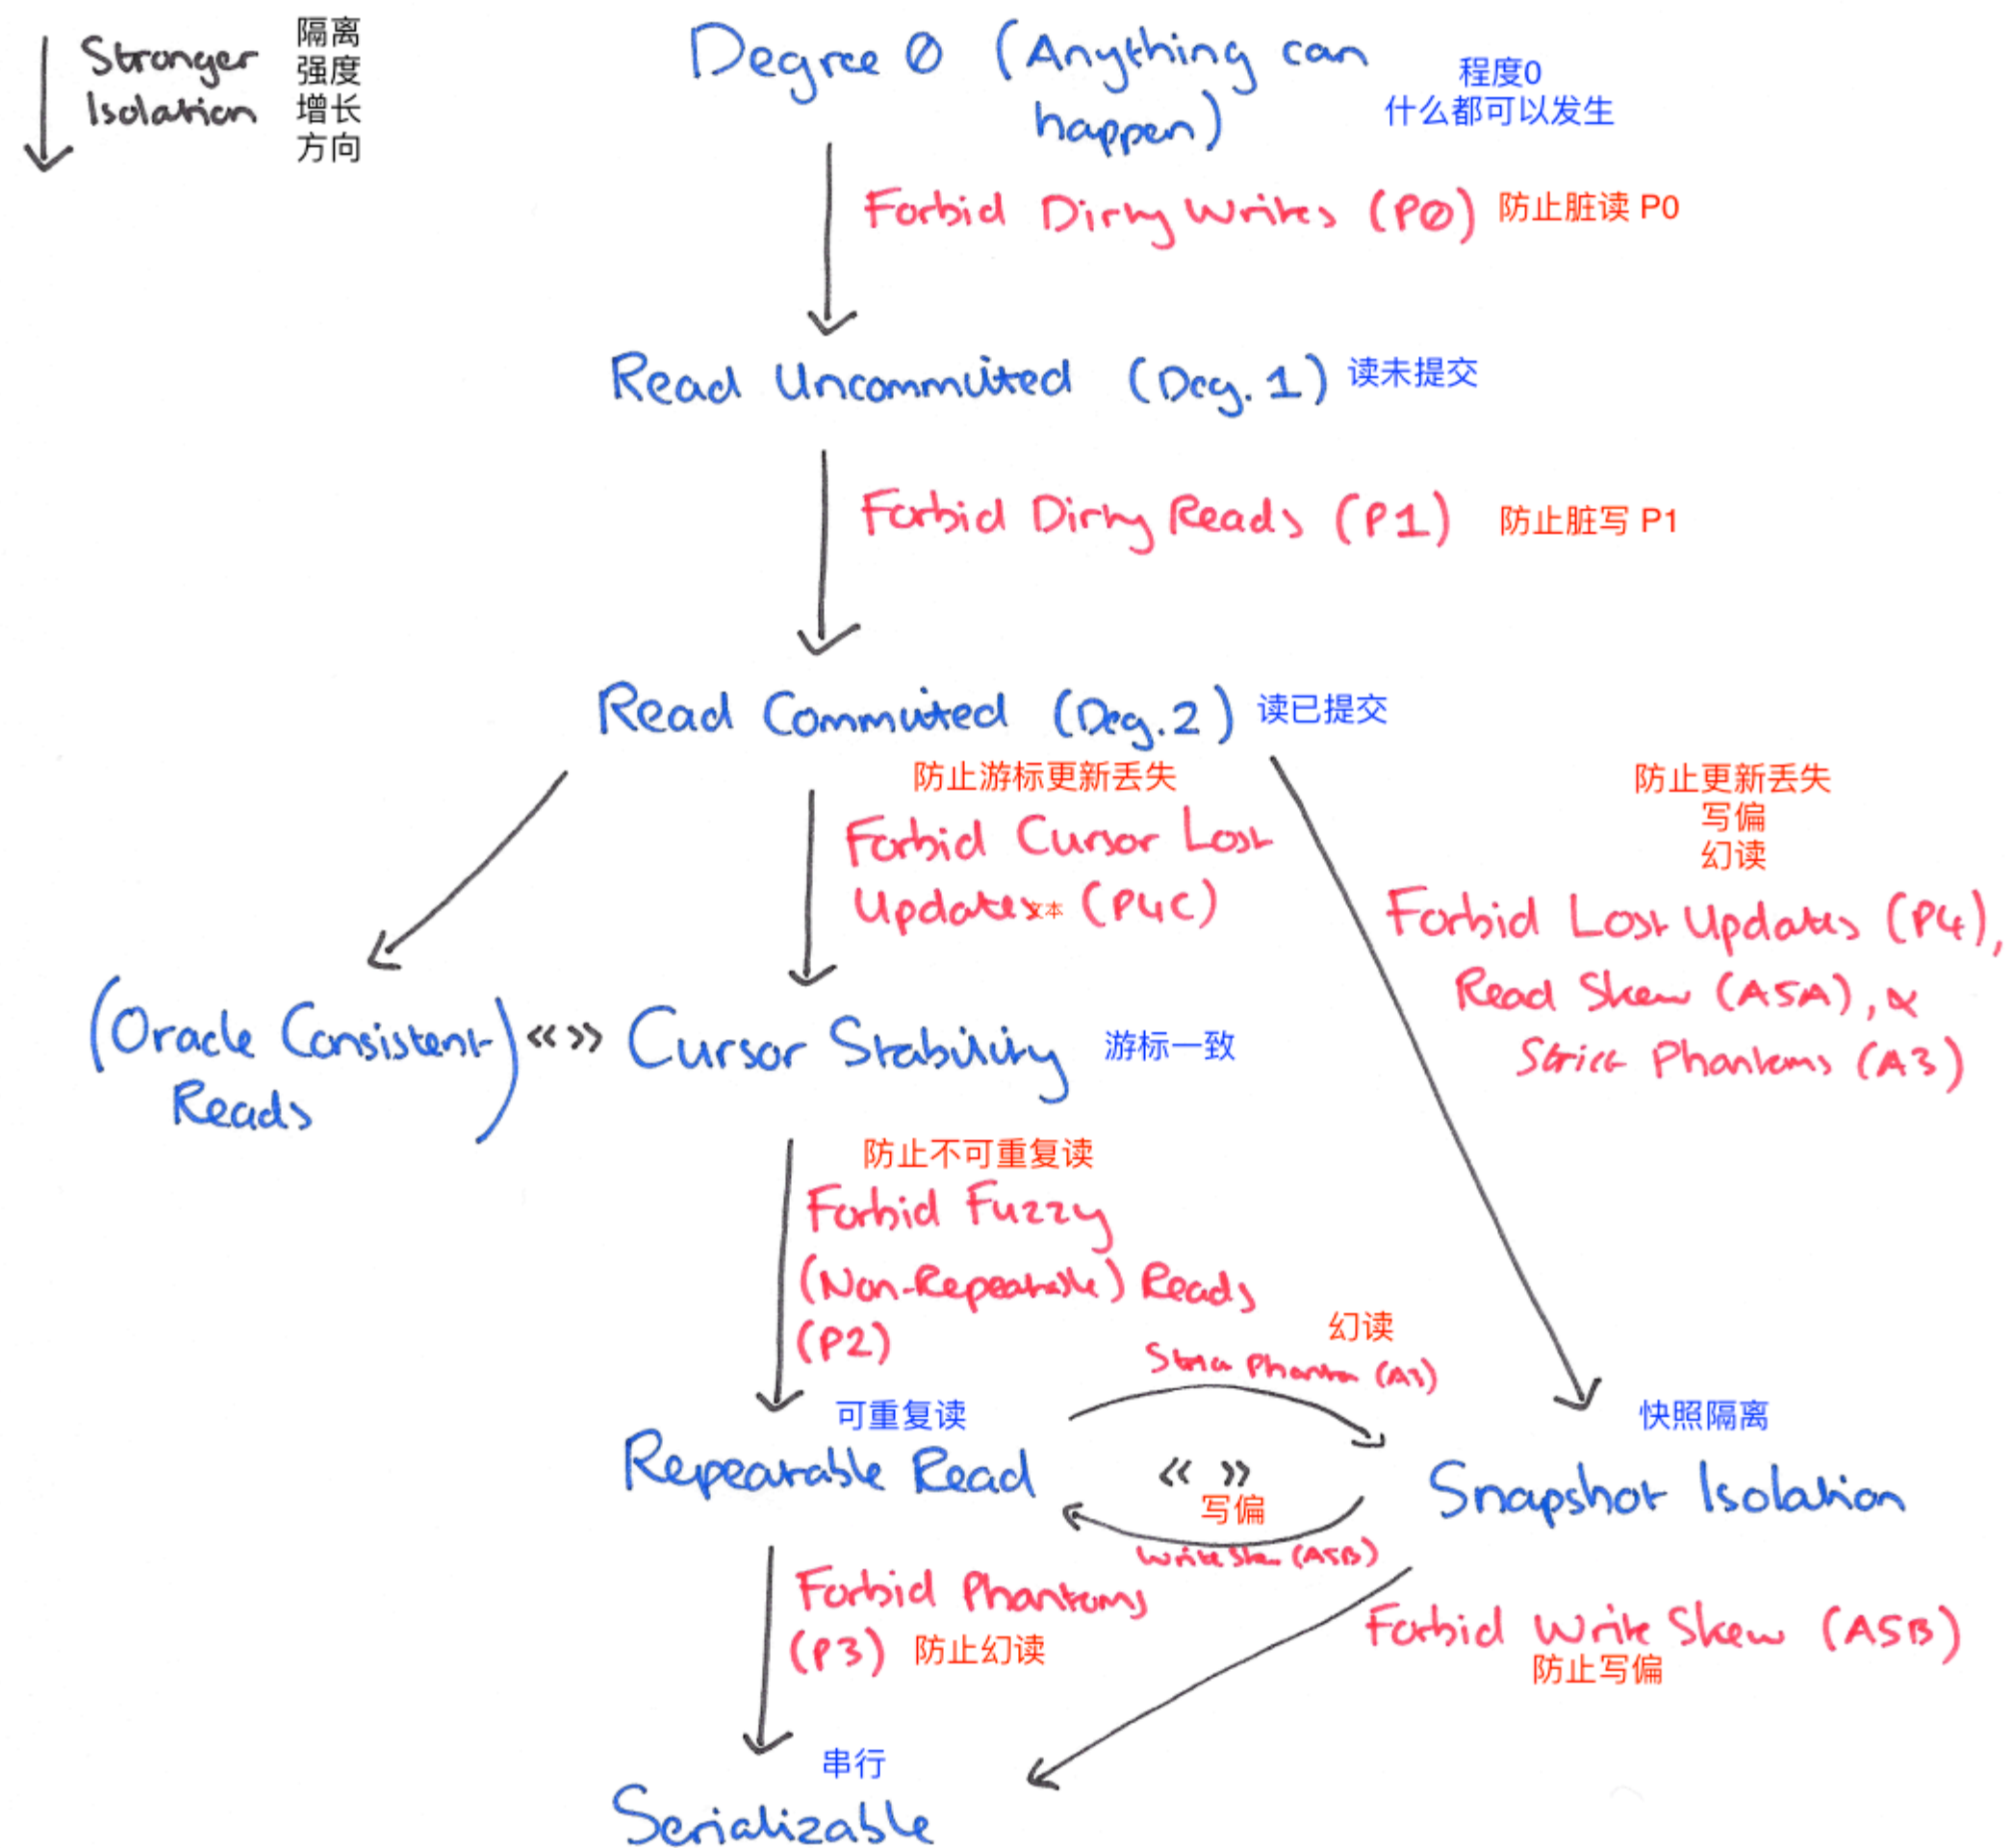 Stronger
Isolation
隔离
强度
增长
方向
Degree 0 (Anything can
happen)
程度0
什么都可以发生
Forbid Dirty Writes (P0)
防止脏读 P0
Read Uncommitted (Deg. 1)
读未提交
Forbid Dirty Reads (P1)
防止脏写 P1
Read Committed (Deg. 2)
读已提交
防止游标更新丢失
Forbid Cursor Lost
Updates文本 (P4C)
防止更新丢失
写偏
幻读
Forbid Lost Updates (P4),
Read Skew (A5A), &
Strict Phantoms (A3)
(Oracle Consistent
Reads)
«»
Cursor Stability
游标一致
防止不可重复读
Forbid Fuzzy
(Non-Repeatable) Reads
(P2)
幻读
Strict Phantom (A3)
可重复读
Repeatable Read
« »
写偏
Write Skew (A5B)
快照隔离
Snapshot Isolation
Forbid Phantoms
(P3) 防止幻读
Forbid Write Skew (A5B)
防止写偏
串行
Serializable